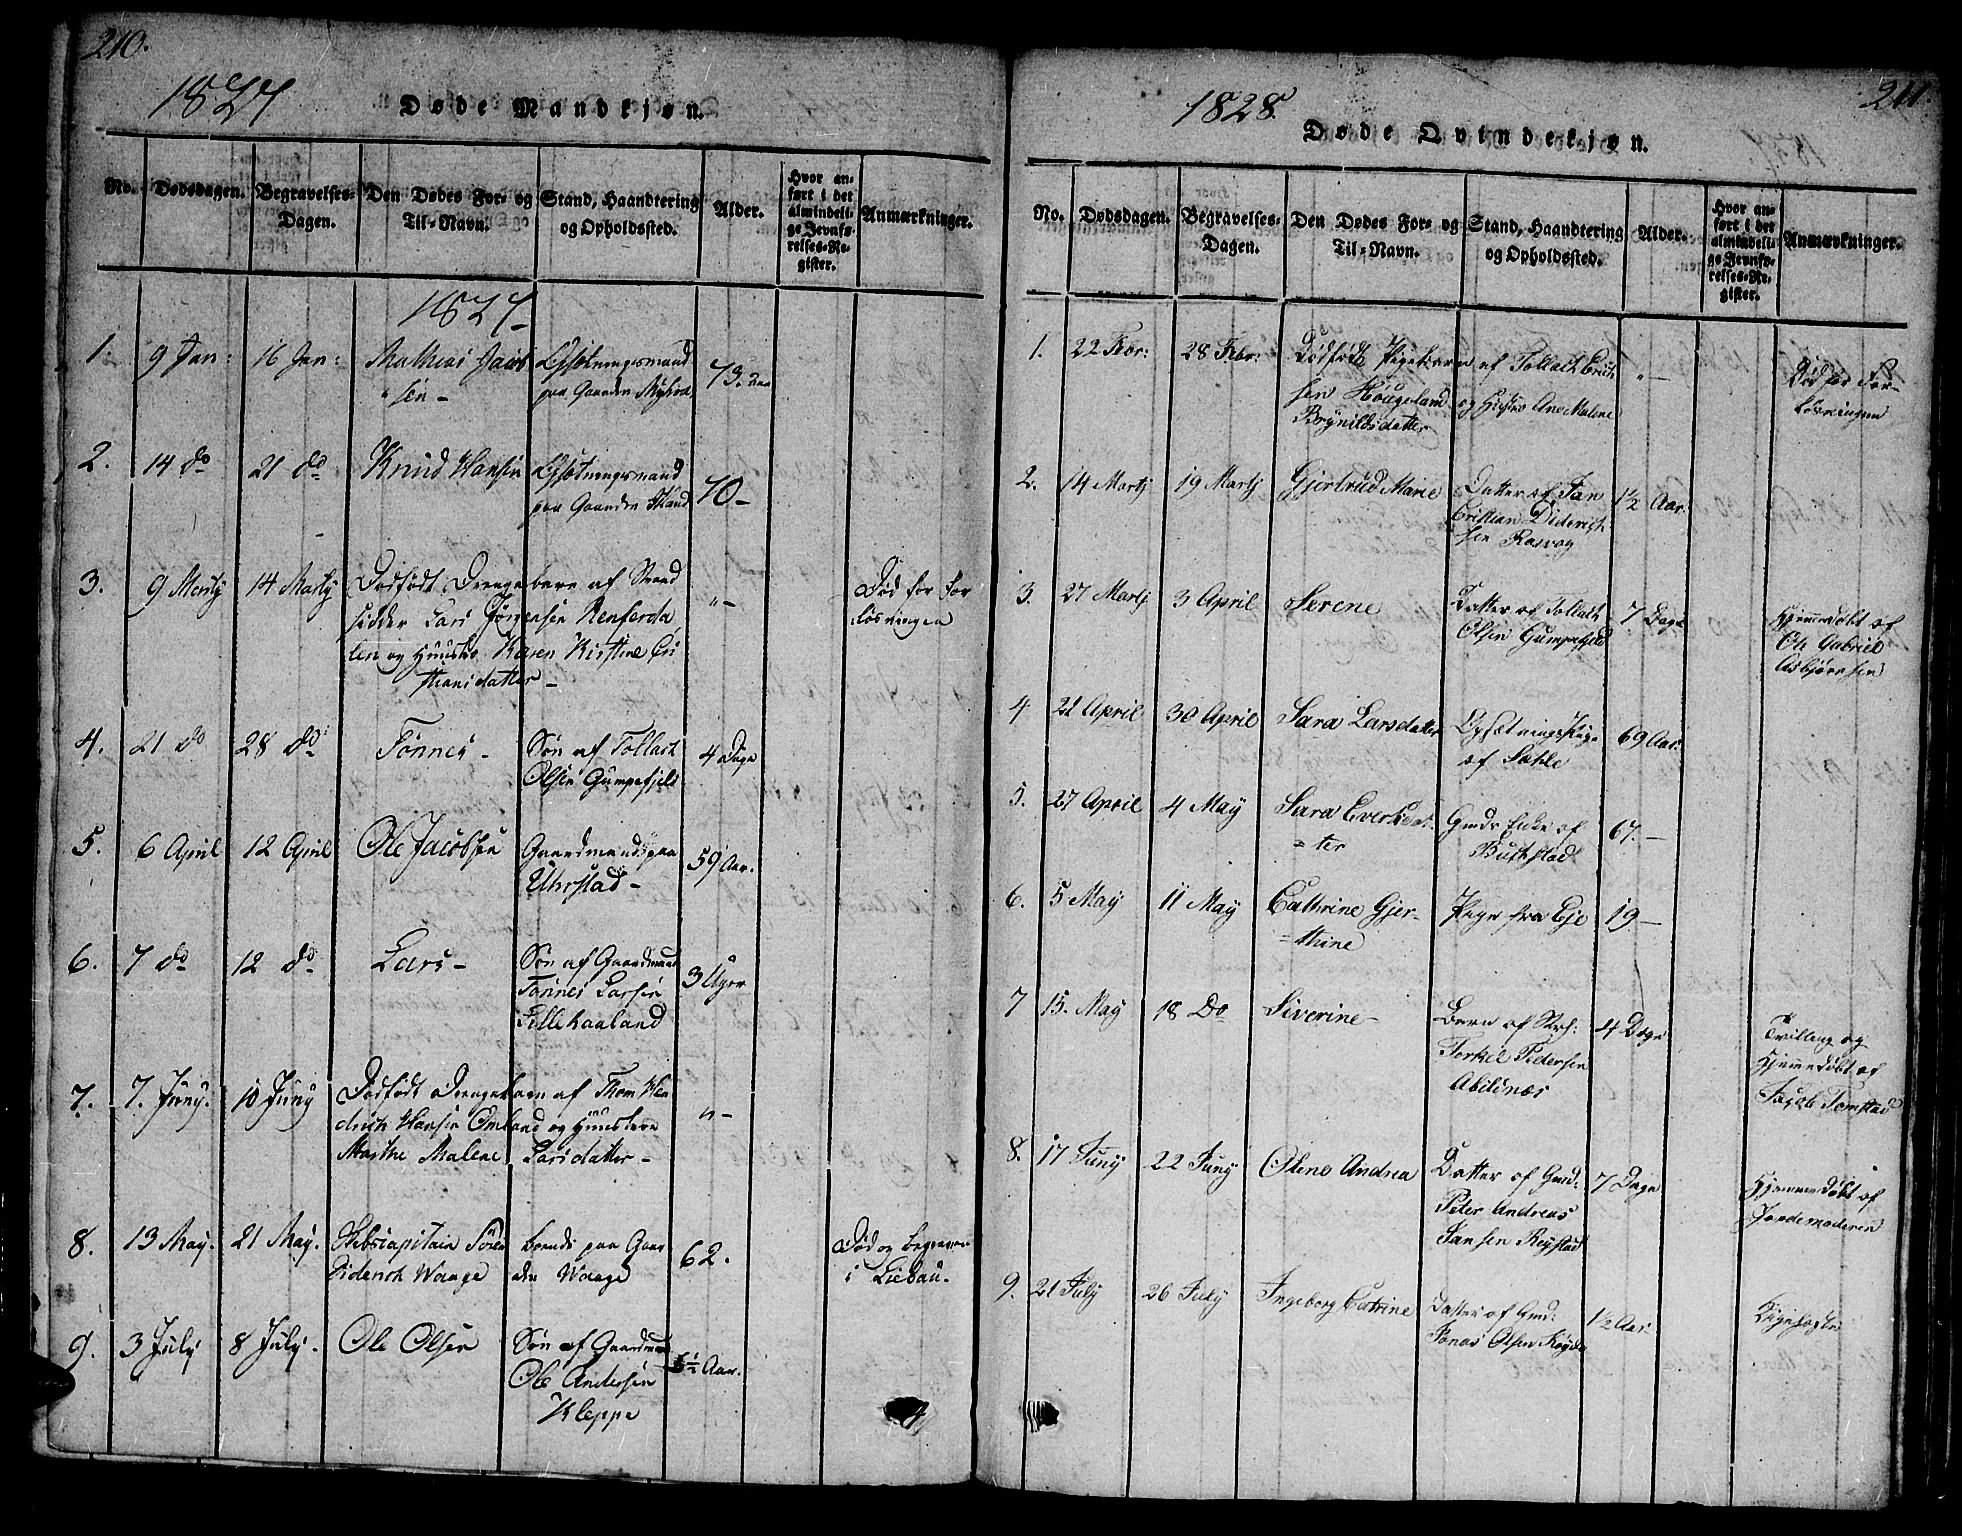 210.
1827
Døde Mandkjøn.
No.
Dødsdagen.
Begravelses-
Dagen.
Den Dødes For- og
Til-Navn.
Stand, Haandtering
og Opholdssted.
Alder.
Hvor an-
ført i det
almindeli-
ge Jevnfø-
relses-Re-
gister.
Anmærkninger.
1827
1. 9 Jan: 16 Jan: Mathias Jacob
sen
Opsidningsmand
paa Gaarden
73
2. 14 do 21 do Knud Hansen
paa Gaarden
70
3. 9 Marty 14 Marty Dødfødt Drengebarn af Strand
sidder Lars Jørgensen Renferda
len og Huustro Karen Kistine Cri
stiansdatter
Død for For
løsningen
4. 21 do 28 do Tønnes
Søn af Tollach
Olsen Gumpefjeld
4 Dage
5. 6 April 12 April Ole Jacobsen
Gaardmand paa
Uhrstad
59 Aar.
6. 7 do 12 do Lars
Søn af Gaardmand
Tønnes Larsen
Lillehaaland
3 Uger
7. 7. Juny. 10 Juny Dødfødt Drengebarn af Thom Hen
drich Hansen Omland og Huustrue
Marthe Malene Larsdatter
8. 13 May. 21 May. Skibscapitain Søren
Diderich Waage
boende paa Gaar
den Waage
62.
Død og begraven
i Liebau.
9. 3 July 8 July. Ole Olsen
Søn af Gaardmand
Ole Andersen
Kleppe
Aar.
211.
1828
Døde Qvindekjøn.
No.
Dødsdagen.
Begravelses-
Dagen.
Den Dødes For- og
Til-Navn.
Stand, Haandtering
og Opholdssted.
Alder.
Hvor an-
ført i det
almindeli-
ge Jevnfø-
relses-Re-
gister.
Anmærkninger.
1. 22 Febr: 28 Febr: Dødfødt Pigebarn af Tollach Erich
sen Høugeland og Hustro Ane Malene
Brynildsdatter
Død for For-
løsningen
2. 14 Martj 19 Martj Gjertrud Marie
Datter af Jan
Cristian Diderich
sen Rasvog
1½ Aar.
3. 27 Martj 3 April Serene
Datter af Tollach
Olsen Gumpefjeld
7 Dage
Hjemmedøbt af
Ole Gabriel
Asbjørnsen
4 21 April 30 April Sara Larsdatter
af Sæhle
69 Aar.
5. 27 April 4 May Sara Evertsdat-
=ter
Gmds Enke af
Buchstad
67.
6. 5 May 11 May Cathrine Gjer-
=thine
Pige fra Eje
19
7 15. May 18 Do Siverine
Barn af Str:
Torkel Pedersen
Abilnæs
4 Dage
Tvilling og
Hjemmedøbt af
Jacob Tomstad
8. 17 Juny 22 Juny Olene Andrea
Datter af Gmd:
Peter Andreas
Jansen Reystad
7 Dage
Hjemmedøbt af
Jordemoderen
9. 21 July 26 July Ingeborg Catrine
Datter af Gmd:
Jonas Olsen
1½ Aar.